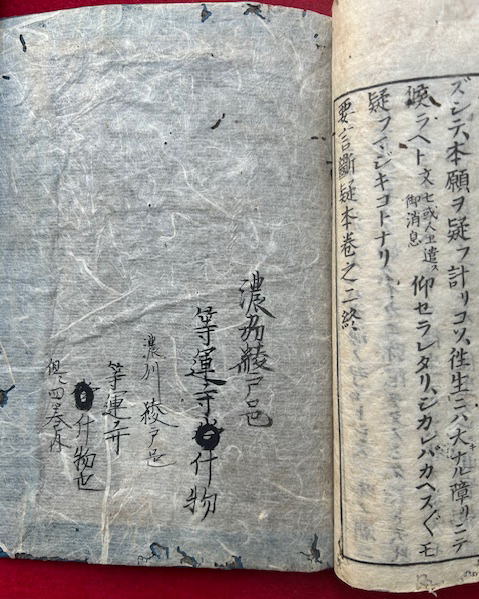 ズシテ本願ヲ疑フ計リコソ往生ニハ大ナル障リニテ
候ラヘト文七或人エ遣ス御消息仰セラレタリシカレバカヘスぐモ
疑フマジキコトナリ
要言斷疑本卷之二終
濃刕綾戸邑
等運寺什物
濃川綾戸邑
等運寺
什物也
但シ四卷内